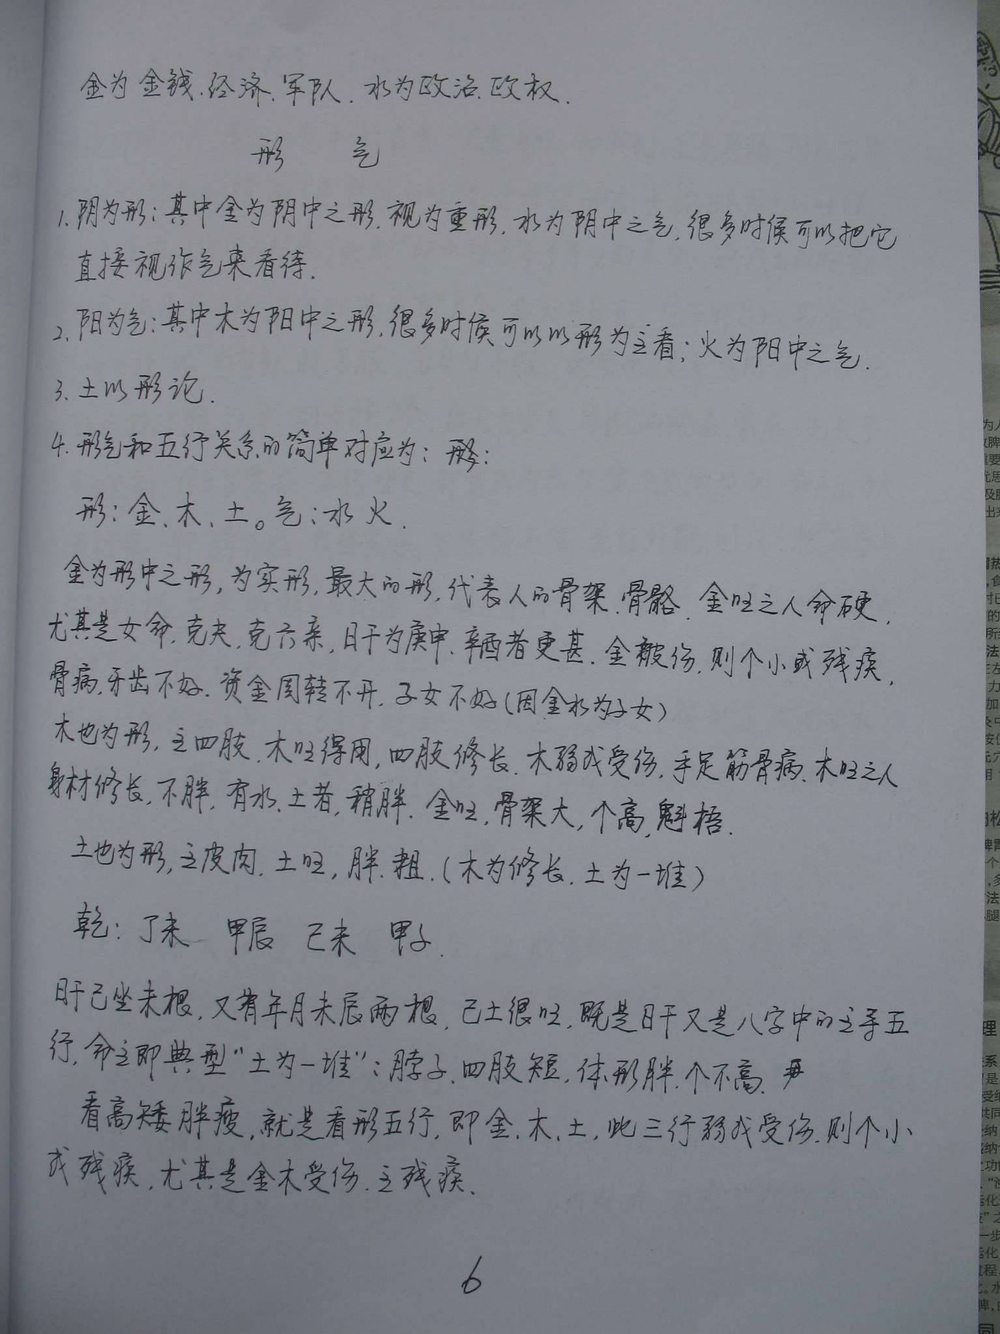 金为金钱.经济.军队.水为政治.政权.
形 气
1.阴为形:其中金为阴中之形,视为重形,水为阴中之气,很多时候可以把它
直接视作气来看待.
2.阳为气:其中木为阳中之形,很多时候可以以形为主看;火为阳中之气.
3.土以形论.
4.形气和五行关系的简单对应为:
形:金、木、土。气:水火.
金为形中之形,为实形,最大的形,代表人的骨架.骨骼.金旺之人命硬,
尤其是女命.克夫,克六亲,日干为庚申.辛酉者更甚.金被伤,则个小或残疾,
骨病,牙齿不好.资金周转不开,子女不好(因金水为子女)
木也为形,主四肢.木旺得用,四肢修长.木弱或受伤,手足筋骨病.木旺之人
身材修长,不胖,有水.土者,稍胖.金旺,骨架大,个高,魁梧.
土也为形,主皮肉.土旺,胖.粗.(木为修长.土为一堆)
乾:丁未 甲辰 己未 甲子.
日干己坐未根,又有年月未辰两根,己土很旺,既是日干又是八字中的主导五
行,命主即典型"土为一堆":脖子.四肢短,体形胖.个不高.
看高矮胖瘦,就是看形五行,即金.木.土,此三行弱或受伤.则个小
或残疾,尤其是金木受伤.主残疾.
6